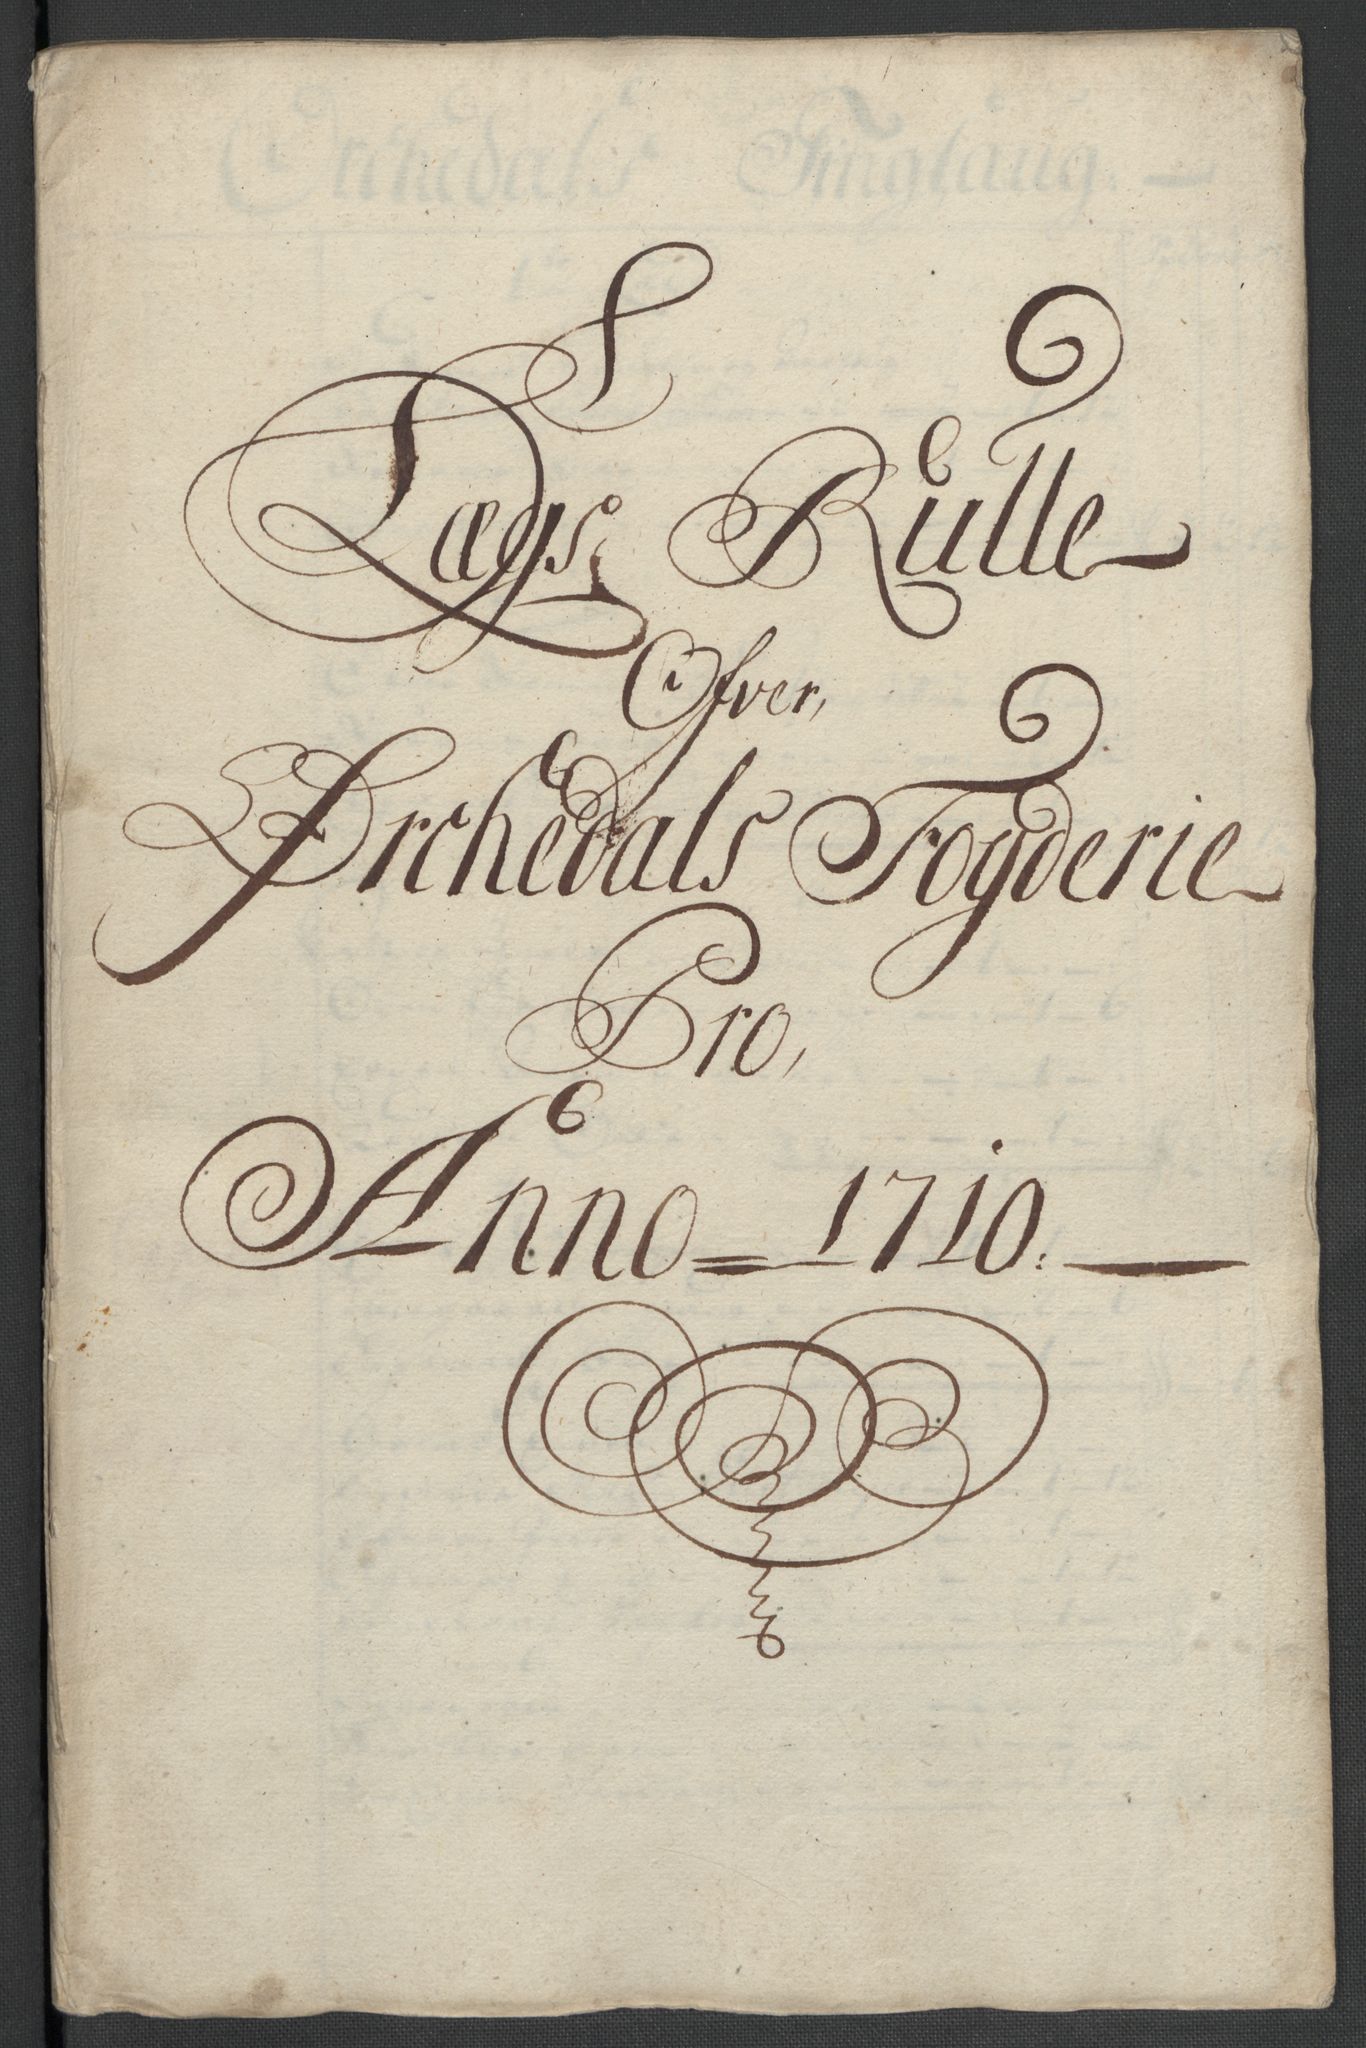 Lægs Rulle
Ofver,
Ørchedals Fogderie
Pro,
Anno 1710.